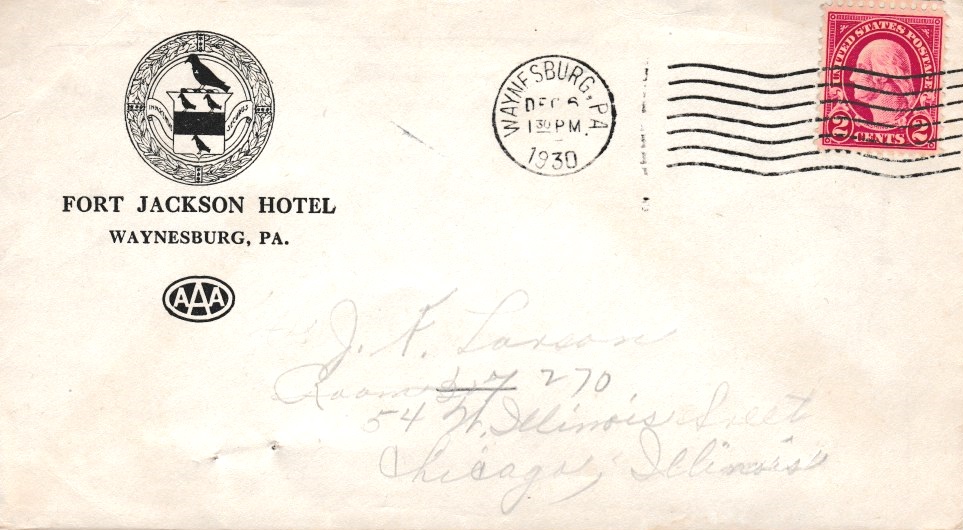 FORT JACKSON HOTEL
WAYNESBURG, PA.
AAA
WAYNESBURG, PA
DEC 6
1 30 PM.
1930
UNITED STATES POSTAGE
2 CENTS 2
J. F. Larson
Room 270
54 W. Illinois Street
Chicago, Illinois